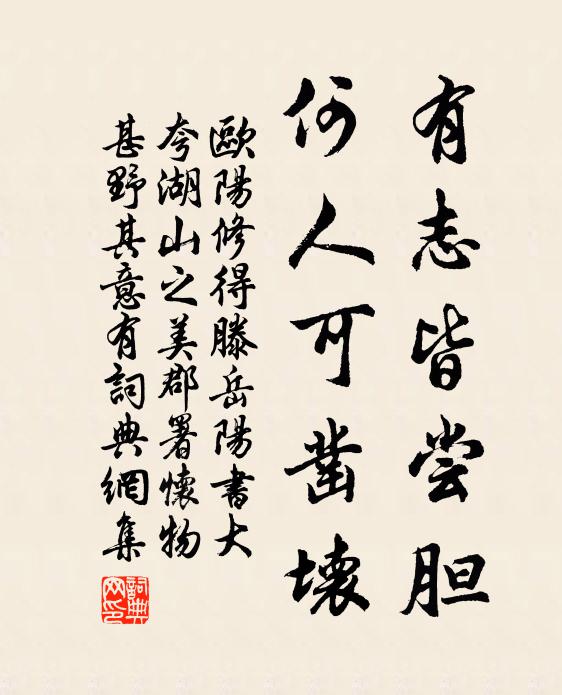 有志皆尝胆
何人可凿壊
歐陽修得滕岳陽書大
夸湖山之美郡署懷物
甚野其意有詞典網集
詞典网印